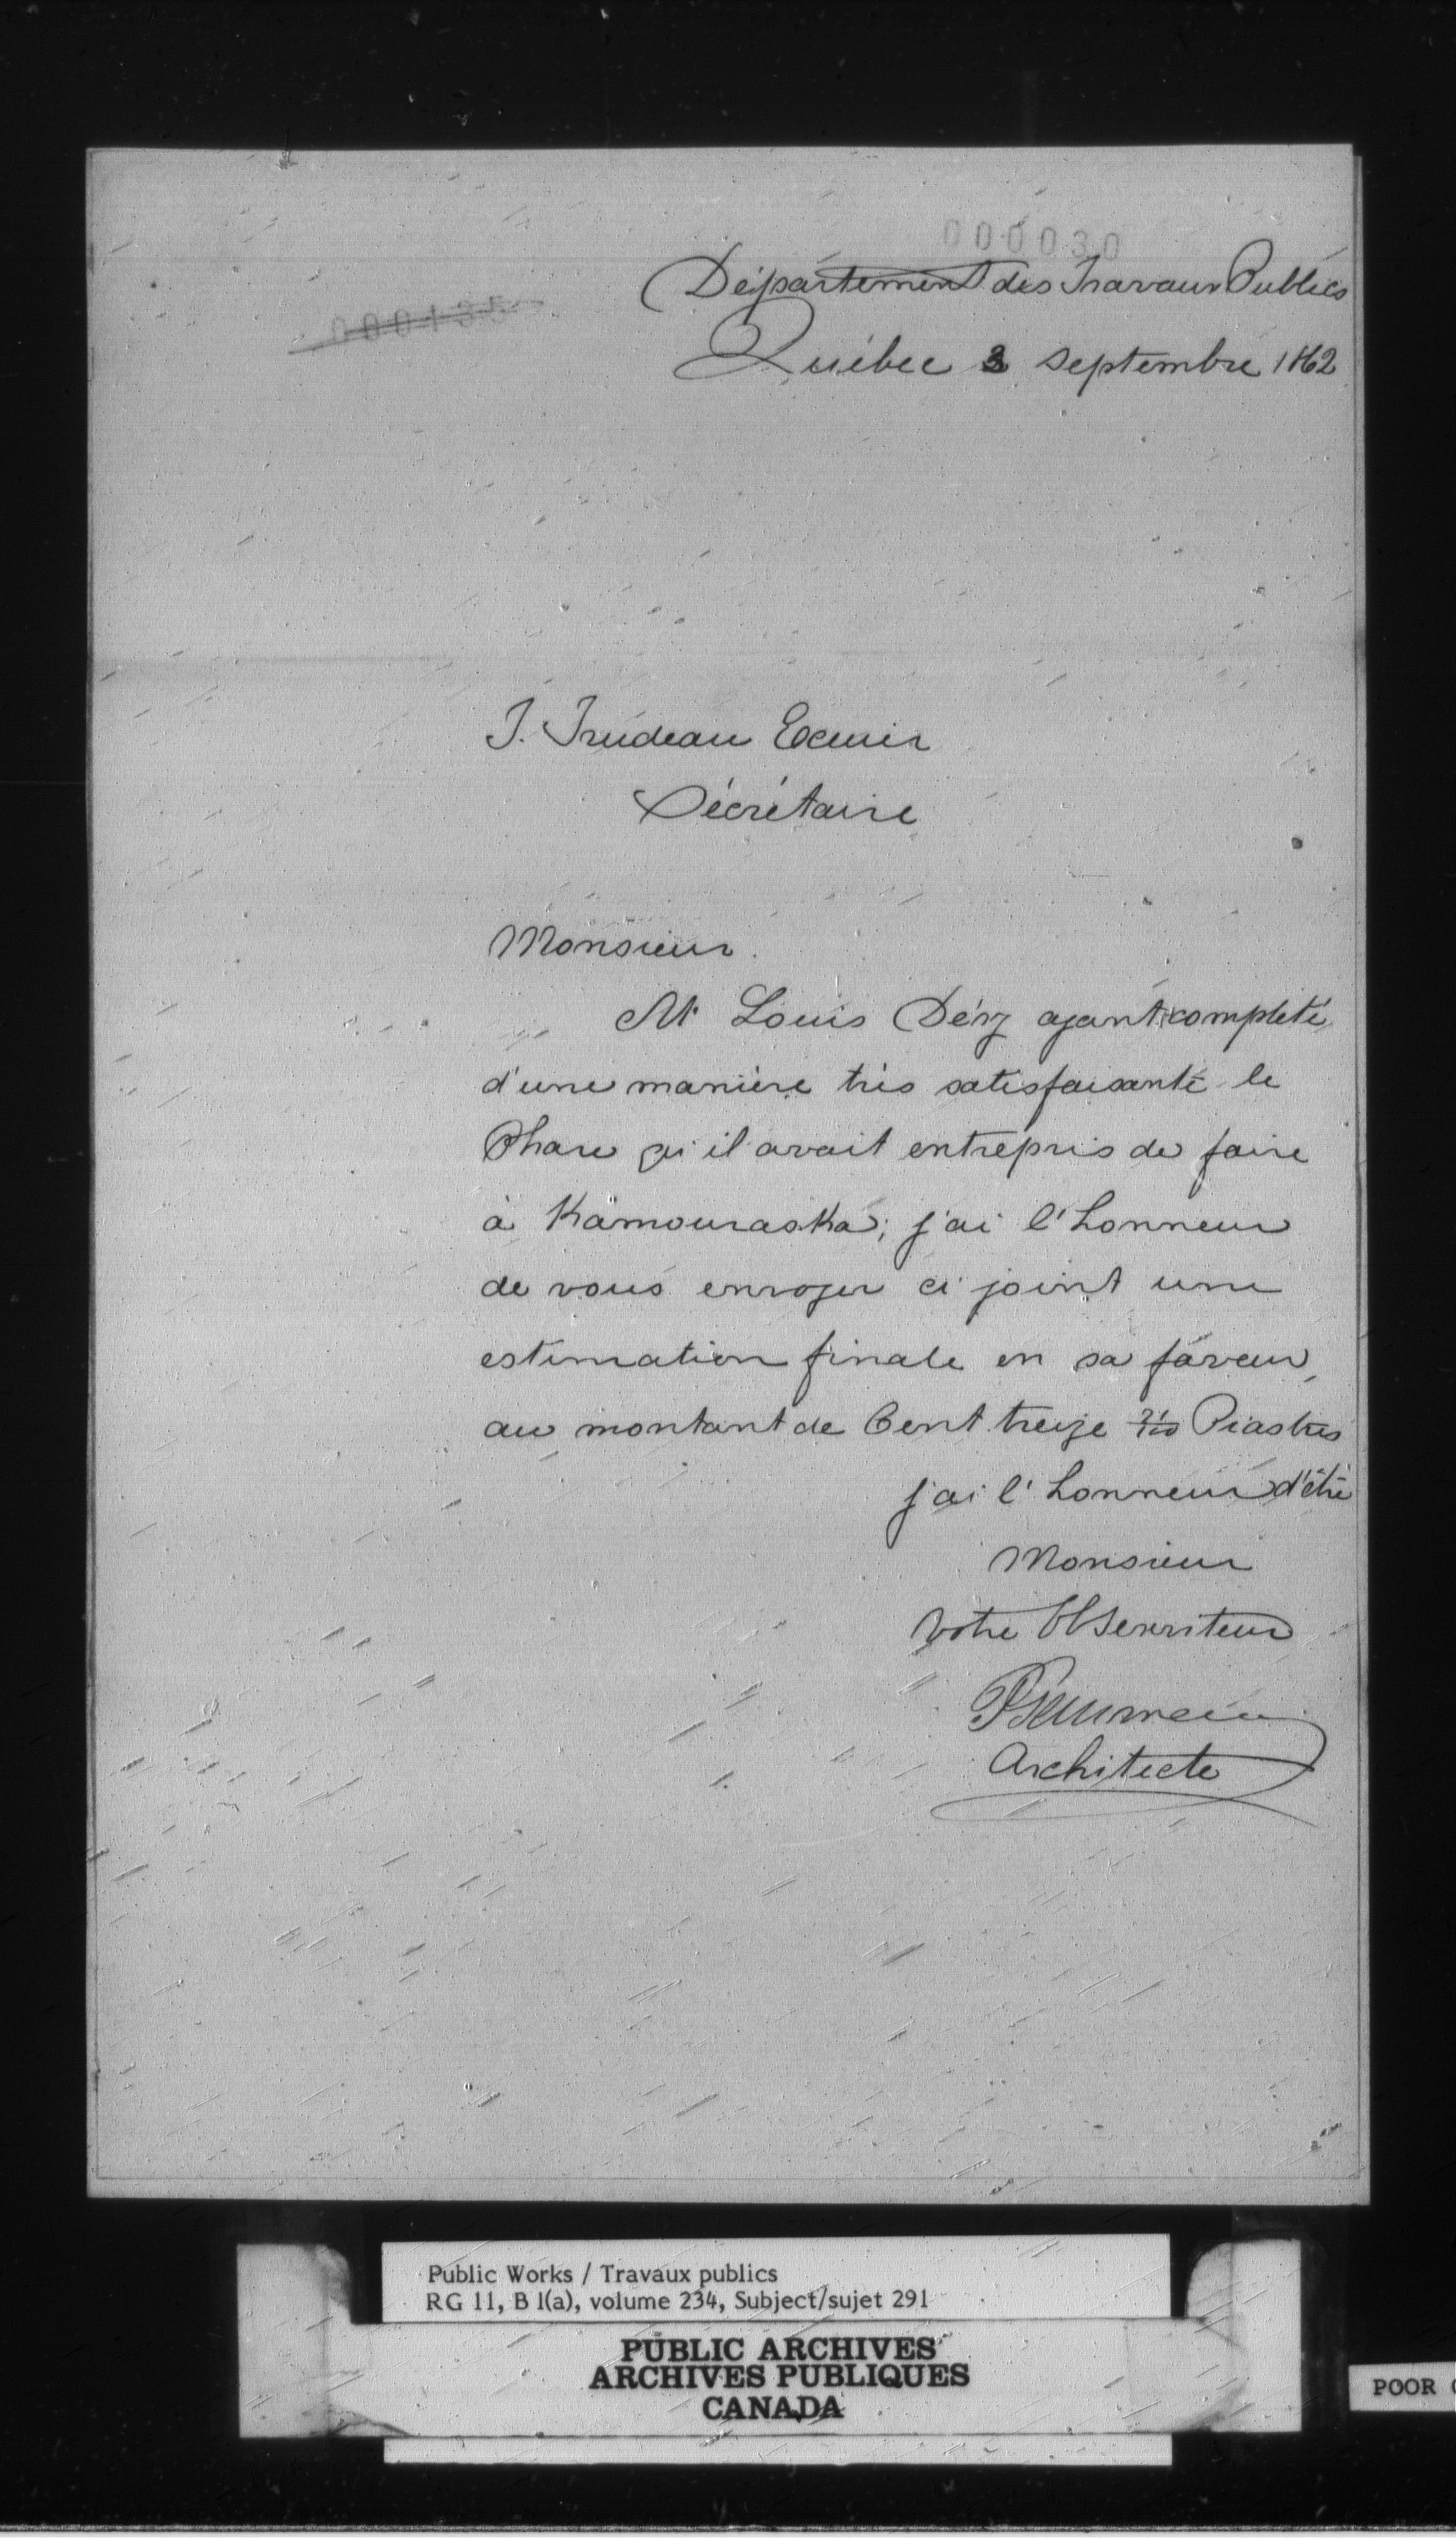 000030
000135
Département des Travaux Publics
Québec 3 septembre 1862
T. Trudeau Ecuier
Sécrétaire
Monsieur.
Mr Louis Déry ayant completé
d'une manière très satisfaisante le
Phare qu'il avait entrepris de faire
à Kamouraska; j'ai l'honneur
de vous envoyer ci joint une
estimation finale en sa faveur,
au montant de Cent treize Piastres
j'ai l'honneur d'être
Monsieur
Votre Ob Serviteur
Architecte
Public Works / Travaux publics
RG 11, B 1(a), volume 234, Subject/sujet 291
PUBLIC ARCHIVES
ARCHIVES PUBLIQUES
CANADA
POOR